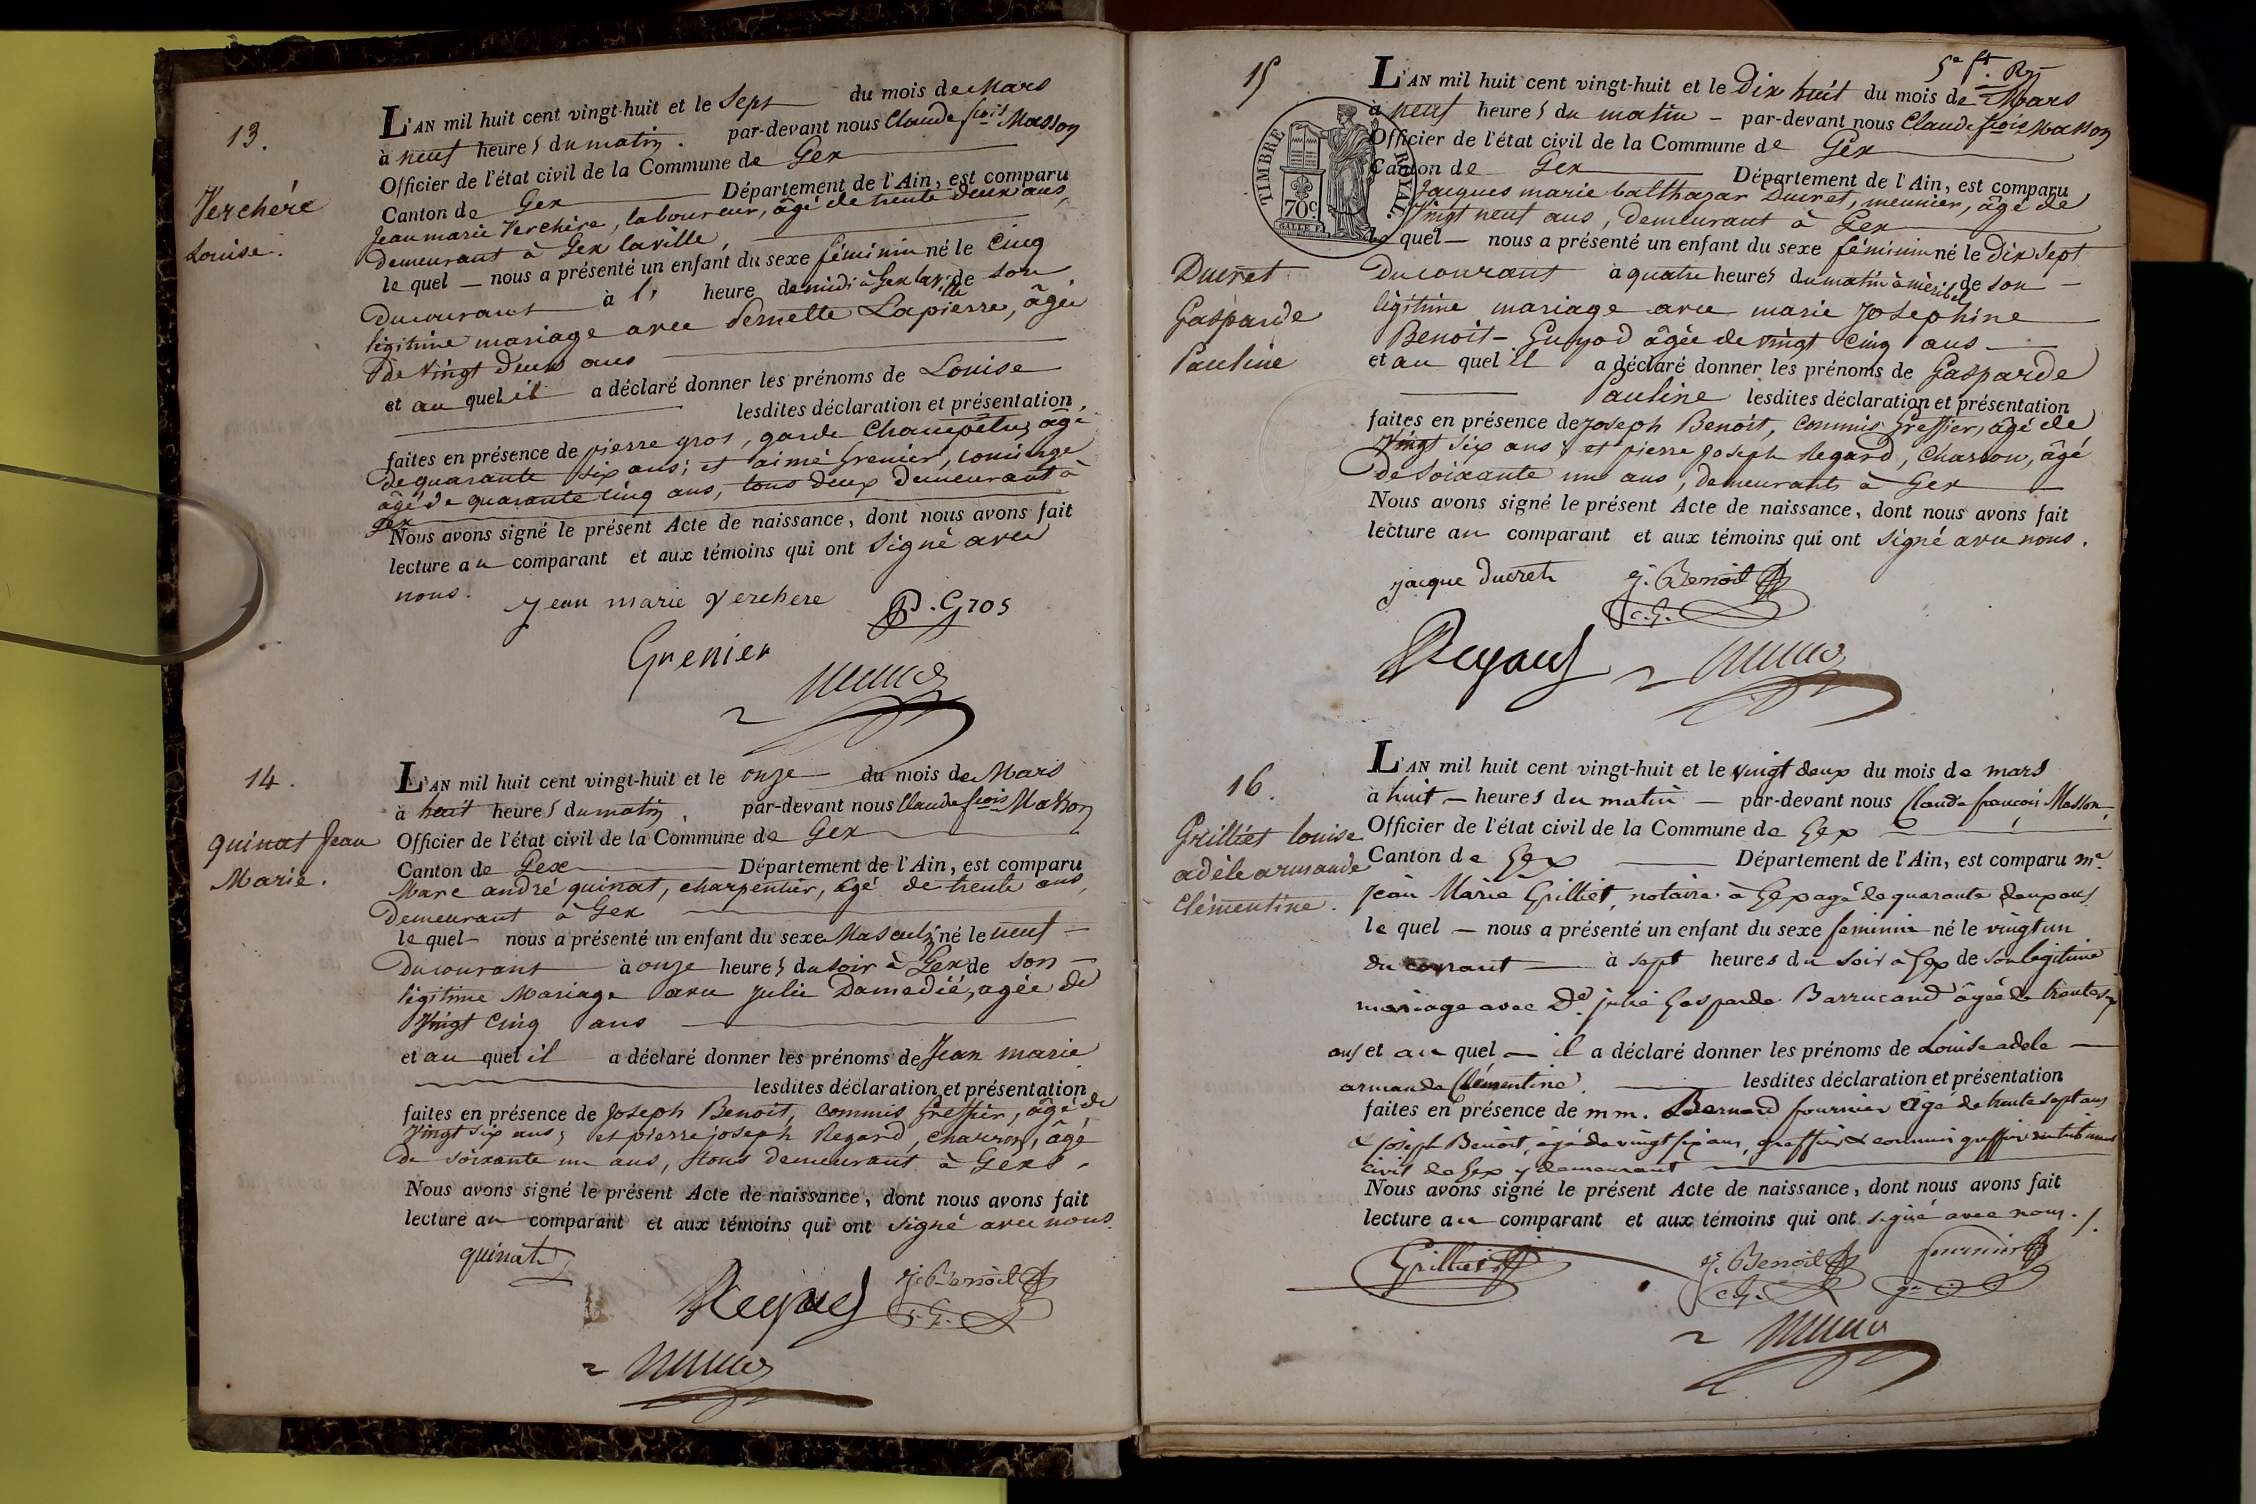 13.
Verchére
Louise.
L'AN mil huit cent vingt-huit et le Sept du mois de Mars
à neuf heures du matin. par-devant nous Claude fcois Masson
Officier de l'état civil de la Commune de Gex
Canton de Gex Département de l'Ain, est comparu
Jean marie Verchère, laboureur, âgé de trente deux ans,
demeurant à Gex la ville,
le quel nous a présenté un enfant du sexe féminin né le Cinq
Du courant à 1, heure de midi à Gex la ville de son
légitime mariage avec Pernette Lapierre, âgée
de vingt deux ans
et au quel il a déclaré donner les prénoms de Louise
lesdites déclaration et présentation,
faites en présence de pierre gros, garde Champêtre, âgé
de quarante six ans; et aimé Grenier, concierge
âgé de quarante cinq ans, tous deux demeurant à
Gex
Nous avons signé le présent Acte de naissance, dont nous avons fait
lecture au comparant et aux témoins qui ont signé avec
nous.
Jean marie Verchere P. Gros
Grenier
14.
quinat Jean
Marie.
L'AN mil huit cent vingt-huit et le onze du mois de Mars
à huit heures du matin, par-devant nous Claude fcois Masson
Officier de l'état civil de la Commune de Gex
Canton de Gex Département de l'Ain, est comparu
Marc andré quinat, charpentier, âgé de trente ans,
Demeurant à Gex
le quel nous a présenté un enfant du sexe Masculin né le neuf
Du courant à onze heures du soir à Gex de son
légitime Mariage avec Julie Damedié, agée de
Vingt Cinq ans
et au quel il a déclaré donner les prénoms de Jean marie
lesdites déclaration et présentation
faites en présence de Joseph Benoit, commis greffier, âgé de
Vingt six ans, et pierre joseph Regard, charron, âgé
de soixante un ans, tous demeurant à Gex.
Nous avons signé le présent Acte de naissance, dont nous avons fait
lecture au comparant et aux témoins qui ont signé avec nous.
quinat
Regard J. Benoit
C. G.
15
5e ft. Rz
Ducret
Gasparde
Pauline
TIMBRE ROYAL.
70c
L'AN mil huit cent vingt-huit et le Dix huit du mois de Mars
à neuf heures du matin - par-devant nous Claude fcois Masson
Officier de l'état civil de la Commune de Gex
Canton de Gex Département de l'Ain, est comparu
Jacques marie balthazar Ducret, meunier, âgé de
Vingt neuf ans, demeurant à Gex
le quel nous a présenté un enfant du sexe féminin né le Dix sept
Du courant à quatre heures du matin à de son
légitime mariage avec marie Josephine
Benoit-Guyod âgée de vingt cinq ans
et au quel il a déclaré donner les prénoms de Gasparde
Pauline lesdites déclaration et présentation
faites en présence de Joseph Benoit, commis greffier, âgé de
Vingt six ans & et pierre Joseph Regard, Charron, âgé
de soixante un ans, demeurants à Gex
Nous avons signé le présent Acte de naissance, dont nous avons fait
lecture au comparant et aux témoins qui ont signé avec nous.
jacque ducret J. Benoit
C. G.
Regard
16.
Grilliet louise
adèle armande
Clémentine.
L'AN mil huit cent vingt-huit et le vingt deux du mois de mars
à huit heures du matin par-devant nous Claude françois Masson,
Officier de l'état civil de la Commune de Gex
Canton de Gex Département de l'Ain, est comparu me
Jean Marie Grilliet, notaire à Gex agé de quarante deux ans
le quel nous a présenté un enfant du sexe feminin né le vingt un
du courant à sept heures du soir à Gex de son légitime
mariage avec De. julie Gasparde Barrucand âgée de trente six
ans et au quel il a déclaré donner les prénoms de Louise adele
armande Clémentine. lesdites déclaration et présentation
faites en présence de mm. Bernard fournier âgé de trente sept ans
& joseph Benoit, âgé de vingt six ans, greffier & commis greffier du tribunal
civil de Gex y demeurant
Nous avons signé le présent Acte de naissance, dont nous avons fait
lecture au comparant et aux témoins qui ont signé avec nous./.
Grilliet J. Benoit fournier
C. G.